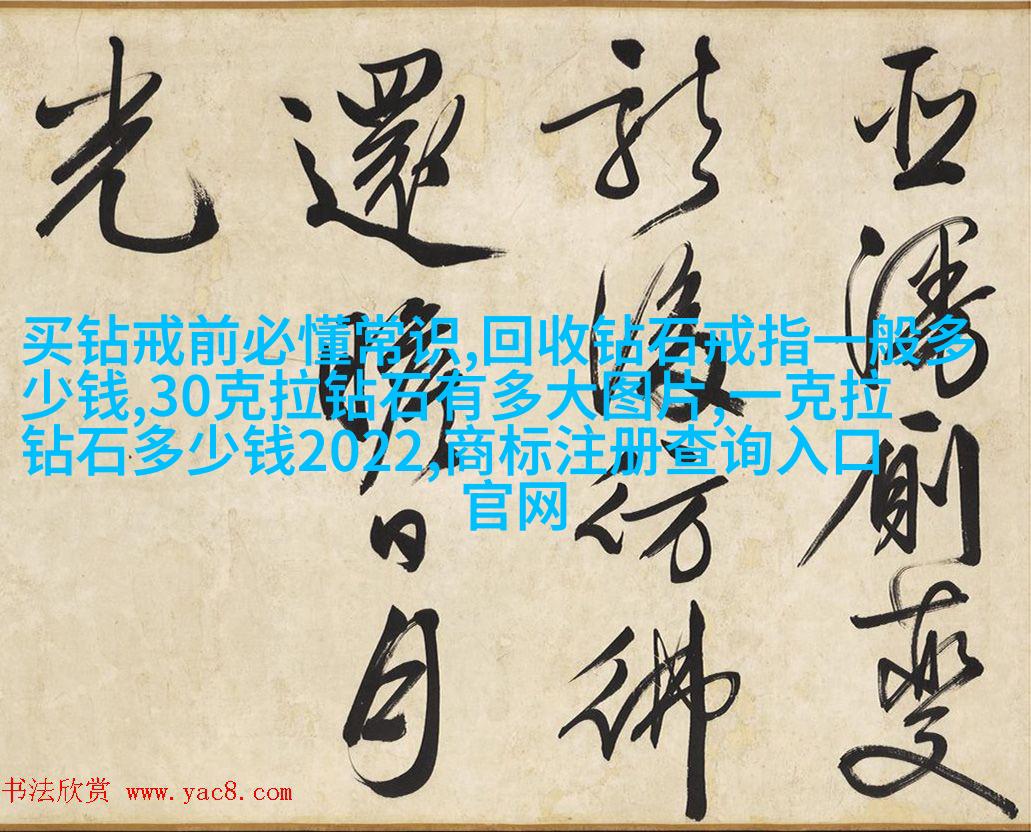 變
彷彿
還日月
光
买钻戒前必懂常识,回收钻石戒指一般多
少钱,30克拉钻石有多大图片,一克拉
钻石多少钱2022,商标注册查询入口
官网
书法欣赏 www.yac8.com